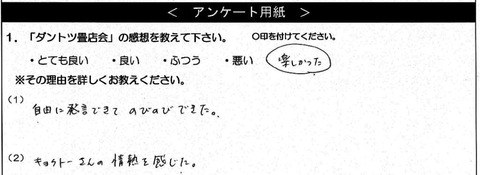 ＜ アンケート用紙 ＞
1．「ダントツ畳店会」の感想を教えて下さい。 〇印を付けてください。
・とても良い ・良い ・ふつう ・悪い 楽しかった
※その理由を詳しくお教えください。
(1)
自由に発言できて のびのびできた。
(2) キョウトーさんの情熱を感じた。